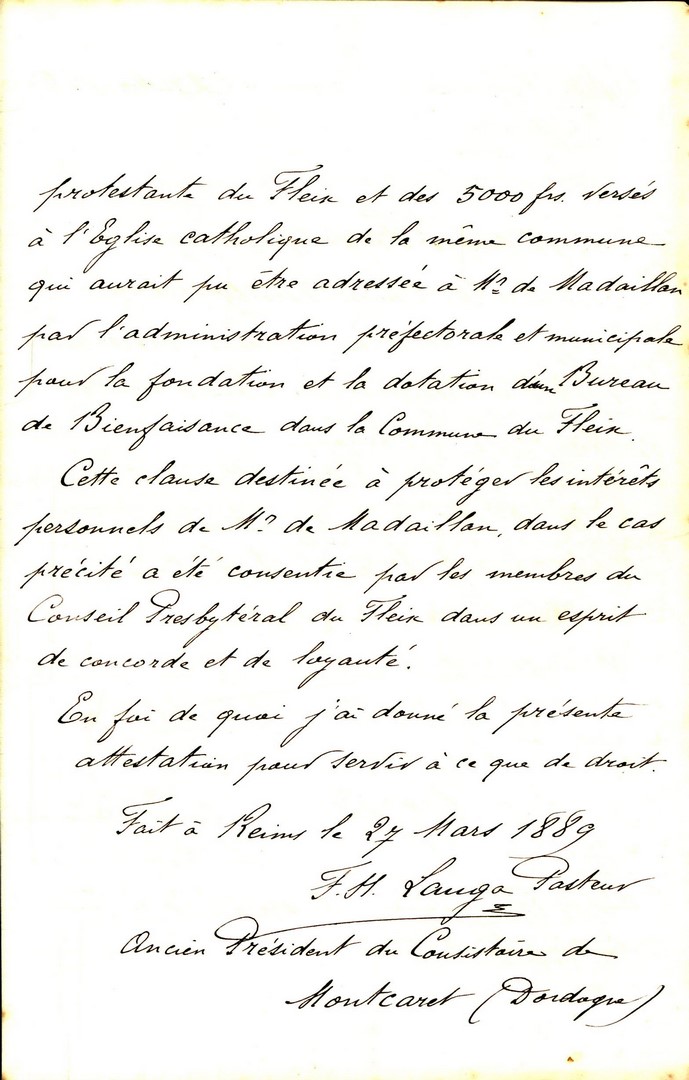 protestante du Fleix et des 5000 frs. versés
à l'Eglise catholique de la même commune
qui aurait pu être adressée à Mr de Madaillan
par l'administration préfectorale et municipale
pour la fondation et la dotation d'un Bureau
de Bienfaisance dans la Commune du Fleix.
Cette clause destinée à protéger les intérêts
personnels de Mr de Madaillan, dans le cas
précité a été consentie par les membres du
Conseil Presbytéral du Fleix dans un esprit
de concorde et de loyauté.
En foi de quoi j'ai donné la présente
attestation pour servir à ce que de droit.
Fait à Reims le 27 Mars 1889
F. H. Lauga Pasteur
Ancien Président du Consistoire de
Montcaret (Dordogne)